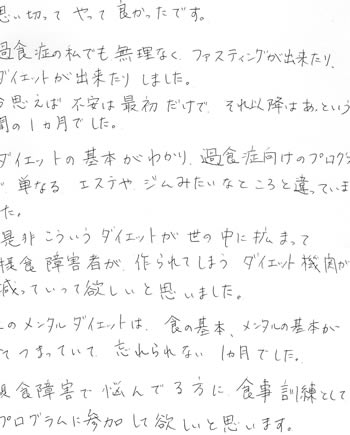 思い切って やって 良かったです。
過食症の私でも 無理なく、ファスティングが出来たり、
ダイエットが出来たり しました。
今思えば 不安は 最初 だけで、それ以降は あっという
間の1ヵ月でした。
ダイエットの 基本 がわかり、過食症向けのプログラ
単なる エステや ジムみたいな ところと 違っていま
た。
是非 こういう ダイエットが 世の中に 拡まって
摂食障害者が、作られてしまう ダイエット機関が
減っていって欲しいと思いました。
このメンタルダイエットは、食の基本、メンタルの基本が
てつまっていて、忘れられない 1ヵ月でした。
摂食障害で 悩んでる方に、食事訓練として
プログラムに参加して欲しいと思います。